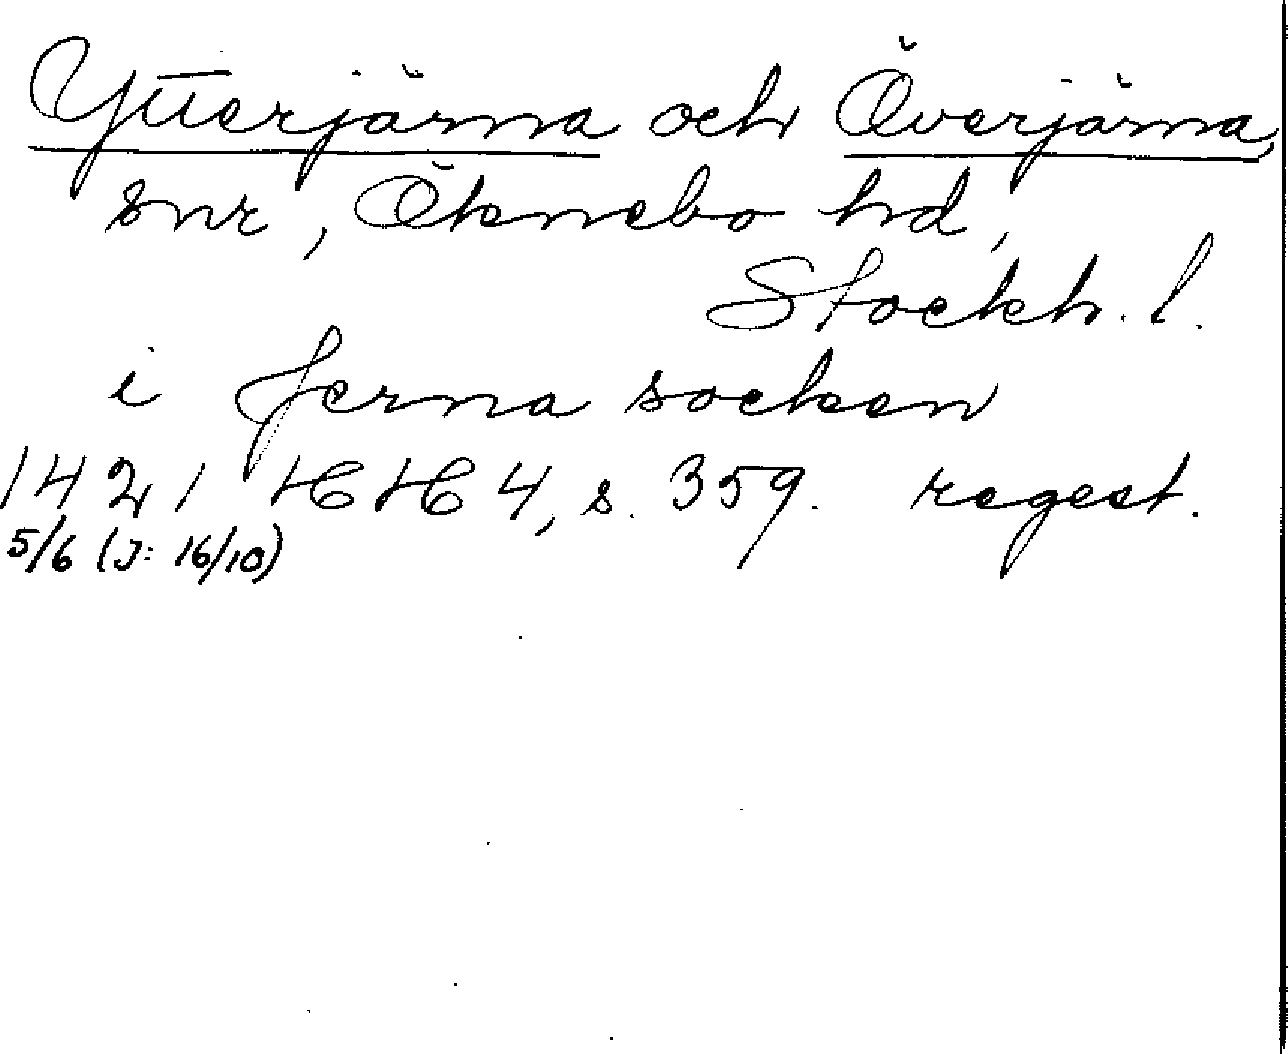 Ytterjärna och Överjärna,
snr, Öknebo hd,
Stockh. l.
i Jerna socken
1421 HH 4, s. 359. regest.
5/6 (J: 16/10)